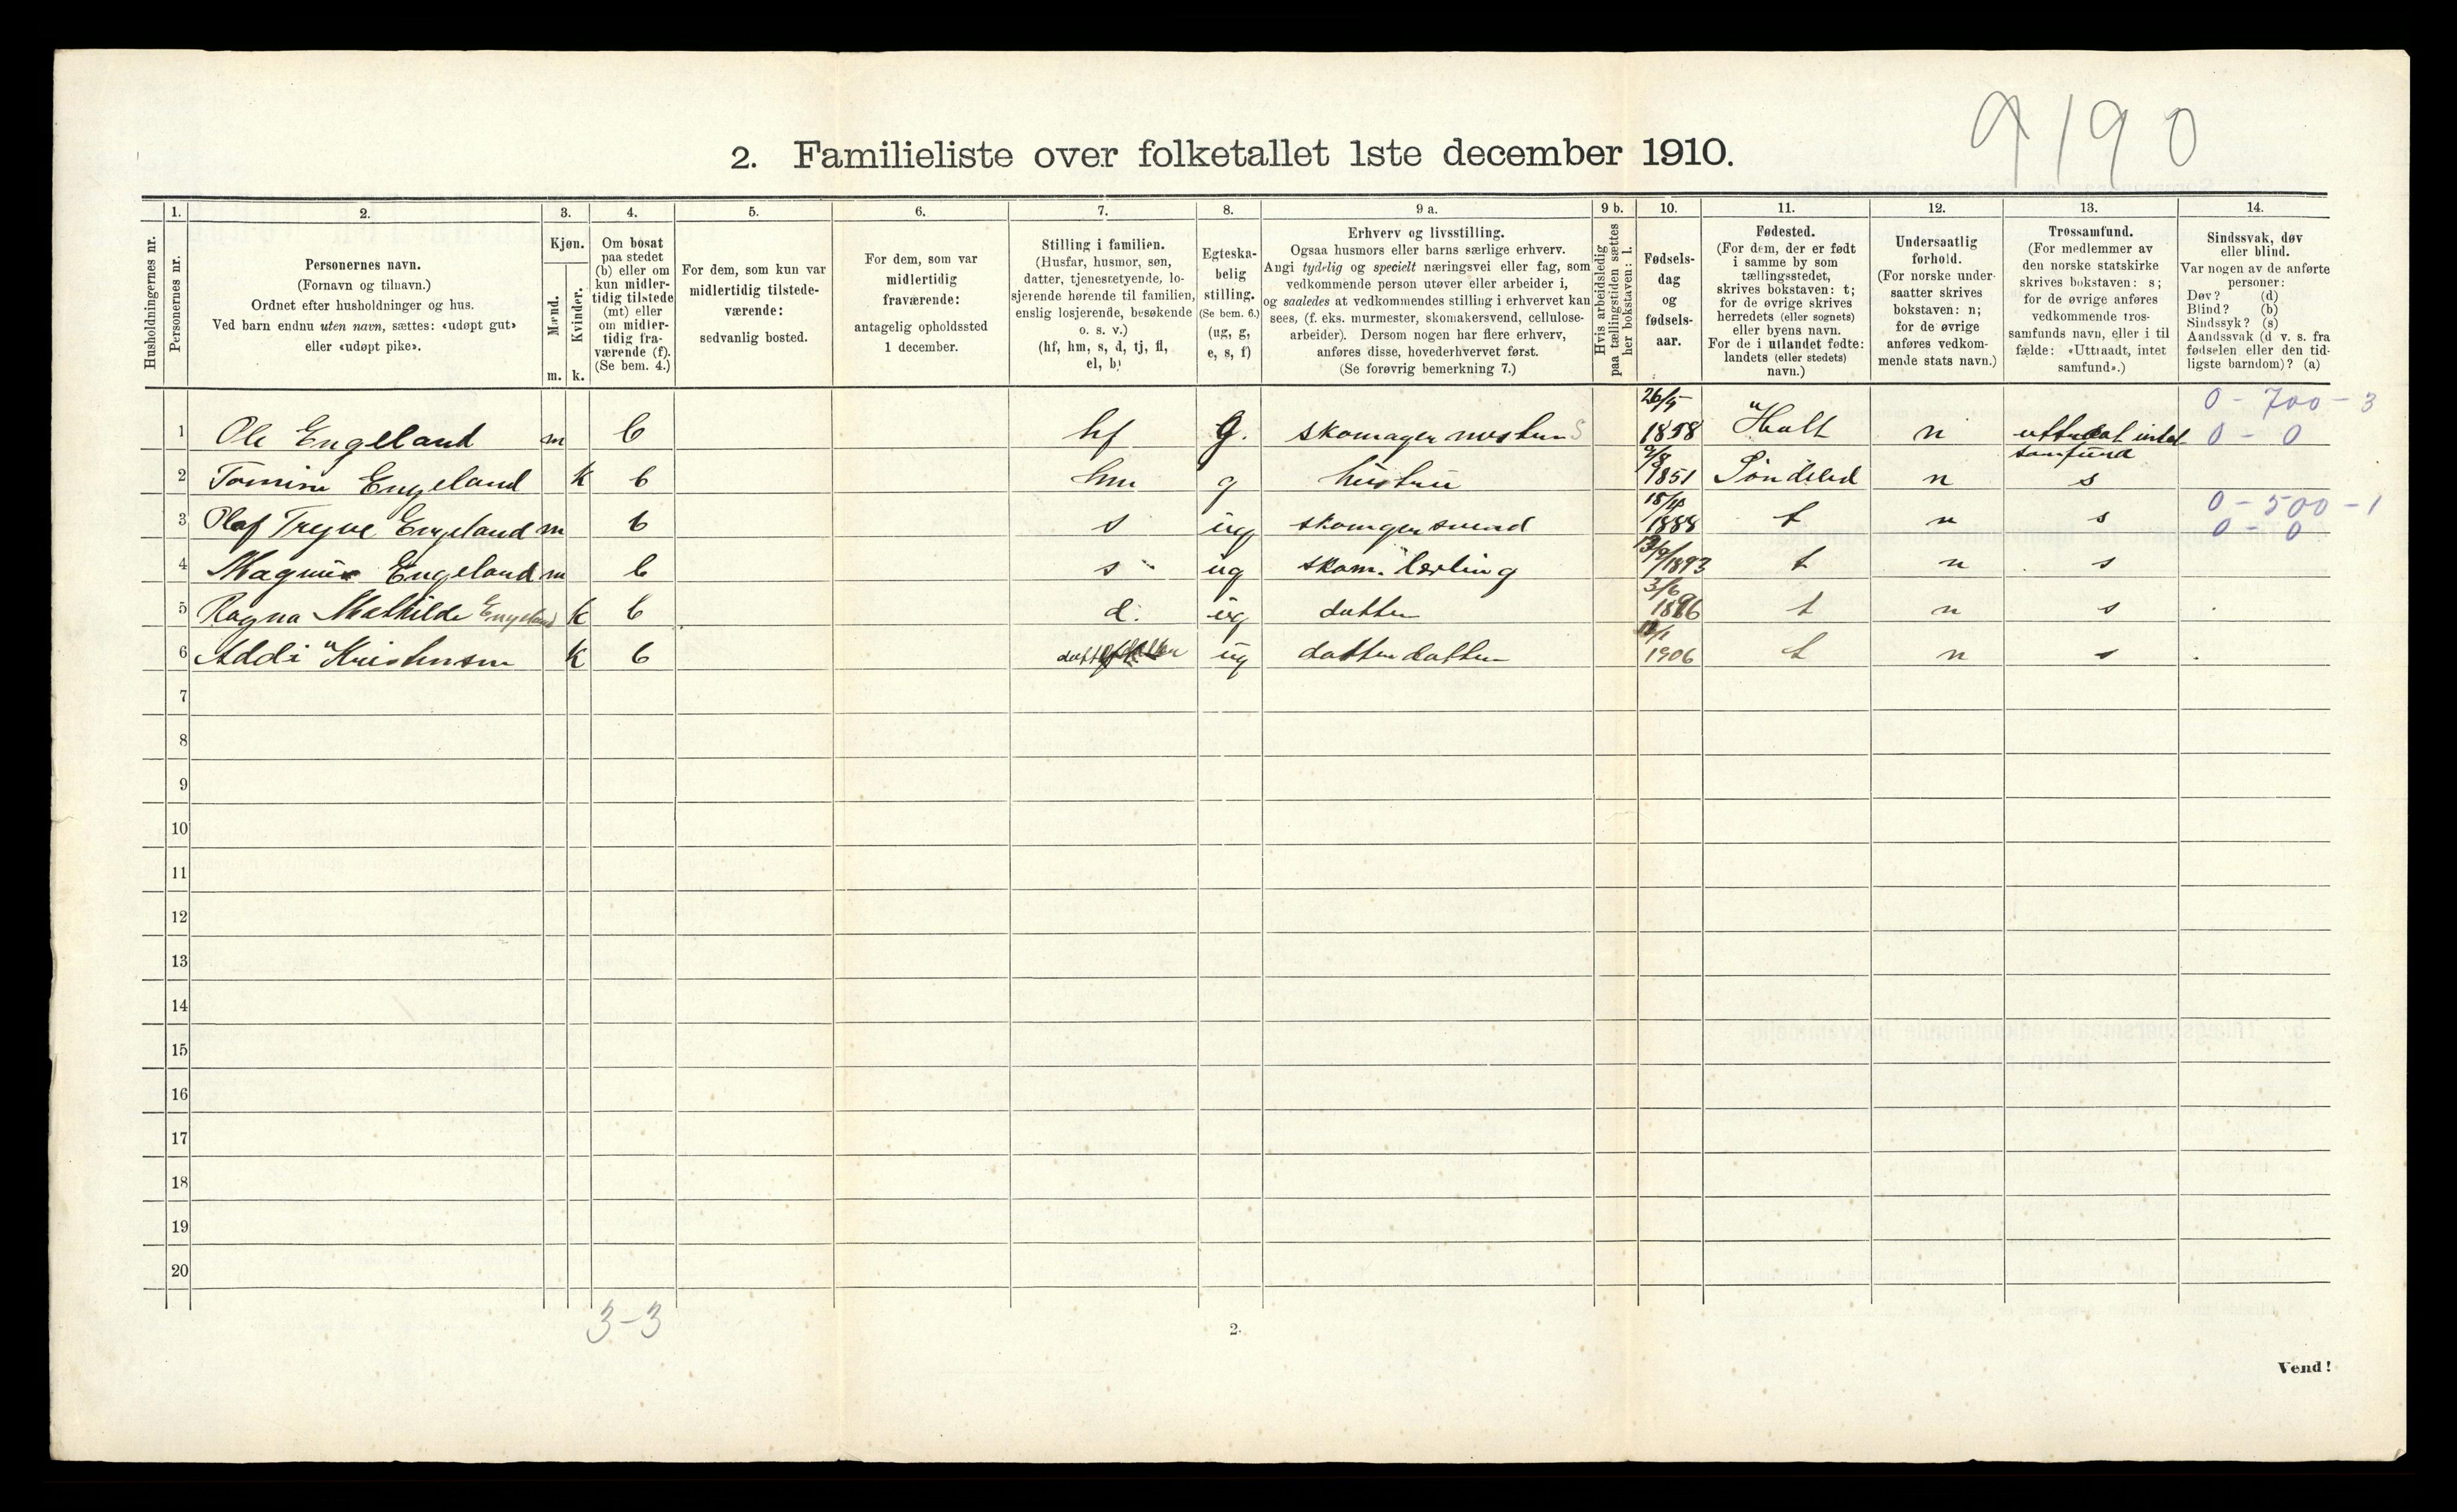 9190
2. Familieliste over folketallet 1ste december 1910.
1. 2. 3. 4. 5. 6. 7. 8. 9 a. 9 b. 10. 11. 12. 13. 14.
Husholdningernes nr.
Personernes nr.
Personernes navn.
(Fornavn og tilnavn.)
Ordnet efter husholdninger og hus.
Ved barn endnu uten navn, sættes: «udøpt gut»
eller «udøpt pike».
Kjøn.
Mænd.
Kvinder.
m. k.
Om bosat
paa stedet
(b) eller om
kun midler-
tidig tilstede
(mt) eller
om midler-
tidig fra-
værende (f).
(Se bem. 4.)
For dem, som kun var
midlertidig tilstede-
værende:
sedvanlig bosted.
For dem, som var
midlertidig
fraværende:
antagelig opholdssted
1 december.
Stilling i familien.
(Husfar, husmor, søn,
datter, tjenestetyende, lo-
sjerende hørende til familien,
enslig losjerende, besøkende
o. s. v.)
(hf, hm, s, d, tj, fl,
el, b)
Egteska-
belig
stilling.
(Se bem. 6.)
(ug, g,
e, s, f)
Erhverv og livsstilling.
Ogsaa husmors eller barns særlige erhverv.
Angi tydelig og specielt næringsvei eller fag, som
vedkommende person utøver eller arbeider i,
og saaledes at vedkommendes stilling i erhvervet kan
sees, (f. eks. murmester, skomakersvend, cellulose-
arbeider). Dersom nogen har flere erhverv,
anføres disse, hovederhvervet først.
(Se forøvrig bemerkning 7.)
Hvis arbeidsledig
paa tællingstiden sættes
her bokstaven: l.
Fødsels-
dag
og
fødsels-
aar.
Fødested.
(For dem, der er født
i samme by som
tællingsstedet,
skrives bokstaven: t;
for de øvrige skrives
herredets (eller sognets)
eller byens navn.
For de i utlandet fødte:
landets (eller stedets)
navn.)
Undersaatlig
forhold.
(For norske under-
saatter skrives
bokstaven: n;
for de øvrige
anføres vedkom-
mende stats navn.)
Trossamfund.
(For medlemmer av
den norske statskirke
skrives bokstaven: s;
for de øvrige anføres
vedkommende tros-
samfunds navn, eller i til
fælde: «Uttraadt, intet
samfund».)
Sindssvak, døv
eller blind.
Var nogen av de anførte
personer:
Døv? (d)
Blind? (b)
Sindssyk? (s)
Aandssvak (d v. s. fra
fødselen eller den tid-
ligste barndom)? (a)
26/5 0 - 700 - 3
1 Ole Engeland m b hf g. skomager mester S 1858 Holt n uttraat intet 0 - 0
samfund
2 Tomine Engeland k b hm g hustru 1851 Søndeled n s
0 - 500 - 1
3 Olaf Tryve Engeland m b s ug skomager svend 1888 t n s 0 - 0
4 Magnus Engeland m b s ug skom. lærling 1893 t n s
3/6
5 Ragna Mathilde Engeland k b d. ug datter 1896 t n s
6 Addi Kristensen k b ug datterdatter 1906 t n s
7
8
9
10
11
12
13
14
15
16
17
18
19
20
3-3
2.
Vend!